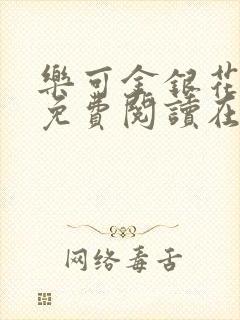 樂可金銀花
免費閱讀在
网络毒舌